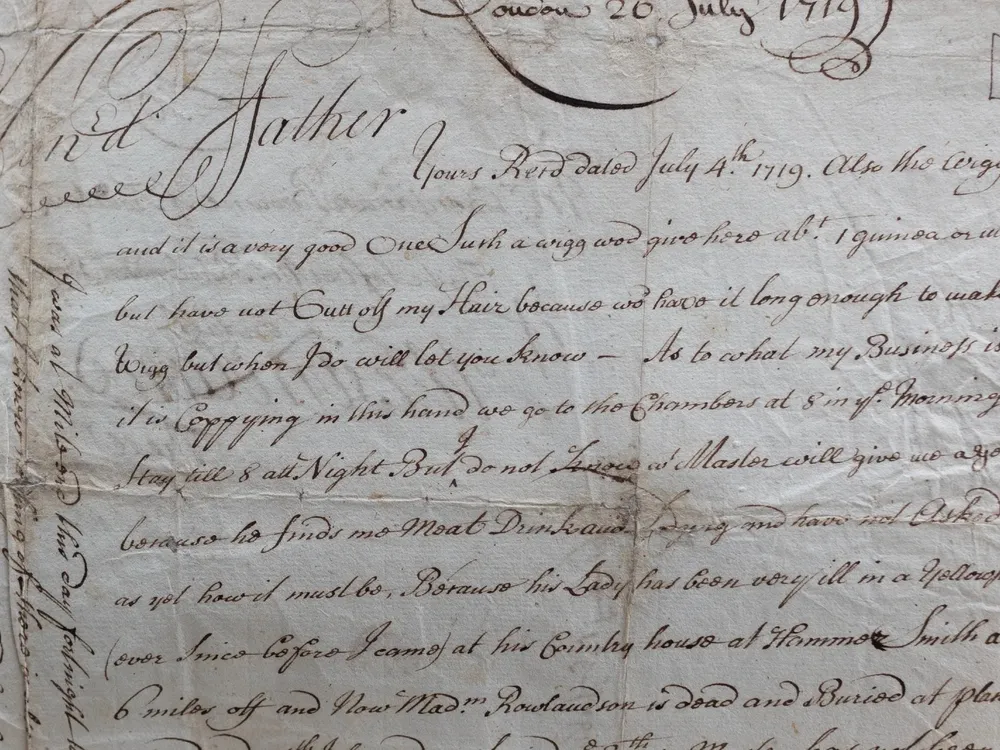 London 26 July 1719
Hond Father
Yours Recd dated July 4th 1719. Also the Wigg
and it is a very good One Such a wigg wod give here abt 1 guinea or
but have not Cutt off my Hair because wod have it long enough to mak
Wigg but when I do will let you know – As to what my Business is
it is Coppying in this hand we go to the Chambers at 8 in ye Morning
Stay till 8 att Night But I do not know wt Master will give me a ye
because he finds me Meat Drink and and have not Asked
as yet how it must be, Because his Lady has been very ill in a Yellow
(ever Since before I came) at his Country house at Hammer Smith a
6 miles off and Now Madm Rowlandson is dead and Buried at
I was at Mile end this day fortnight